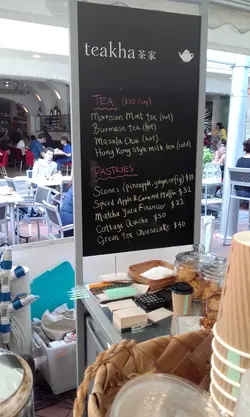 teakha 茶家
TEA ($35/cup)
Moroccan Mint tea (hot)
Burmese tea (hot)
Masala Chai (hot)
Hong Kong style milk tea (cold)
PASTRIES
Scones (pineapple, ginger, or fig)
Spiced Apple & Caramel Muffin $32
Matcha Yuzu Financier $22
Cottage Quiche $50
Green tea Cheesecake $40